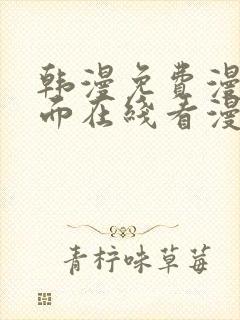 韩漫免费漫
而在线看漫
青柠味草莓